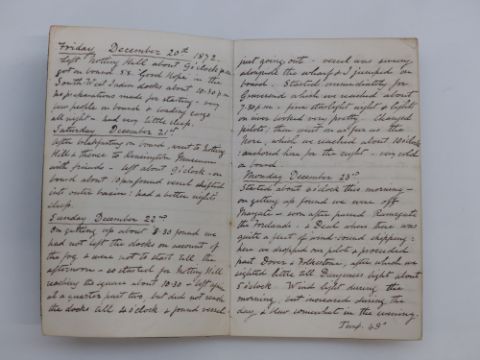 Friday December 20th 1872.
Left Notting Hill about 9 o'clock p.m.
got on board S.S. Good Hope in the
South West India docks about 10.30 p.m.
no preparations made for starting - very
few people on board & loading cargo
all night - had very little sleep.
Saturday December 21st
After breakfasting on board, went to Notting
Hill & thence to Kensington Museum
with friends - left about 9 o'clock - on
board about 10 p.m. found vessel shifted
into outer basin: had a better night's
sleep.
Sunday December 22nd
On getting up about 8.30 found we
had not left the docks on account of
the fog & were not to start till the
afternoon - so started for Notting Hill
reaching the square about 10.30 - left again
at a quarter past two, but did not reach
the docks till 4 o'clock & found vessel
just going out - vessel was swung
alongside the wharf & I jumped on
board. Started immediately for
Gravesend which we reached about
7.30 p.m. - fine starlight night & lights
on river looked very pretty. Changed
pilots, then went on as far as the
Nore, which we reached about 10 o'clock
& anchored here for the night - very cold
on board.
Monday December 23rd
Started about o'clock this morning -
on getting up found we were off
Margate - soon after passed Ramsgate
the Forelands: & Deal where there was
quite a fleet of wind-bound shipping:
here we dropped our pilot & proceeded
past Dover & Folkestone, after which we
sighted little till Dungeness light about
5 o'clock. Wind light during the
morning, but increased during the
day & blew somewhat in the evening.
Temp. 48°